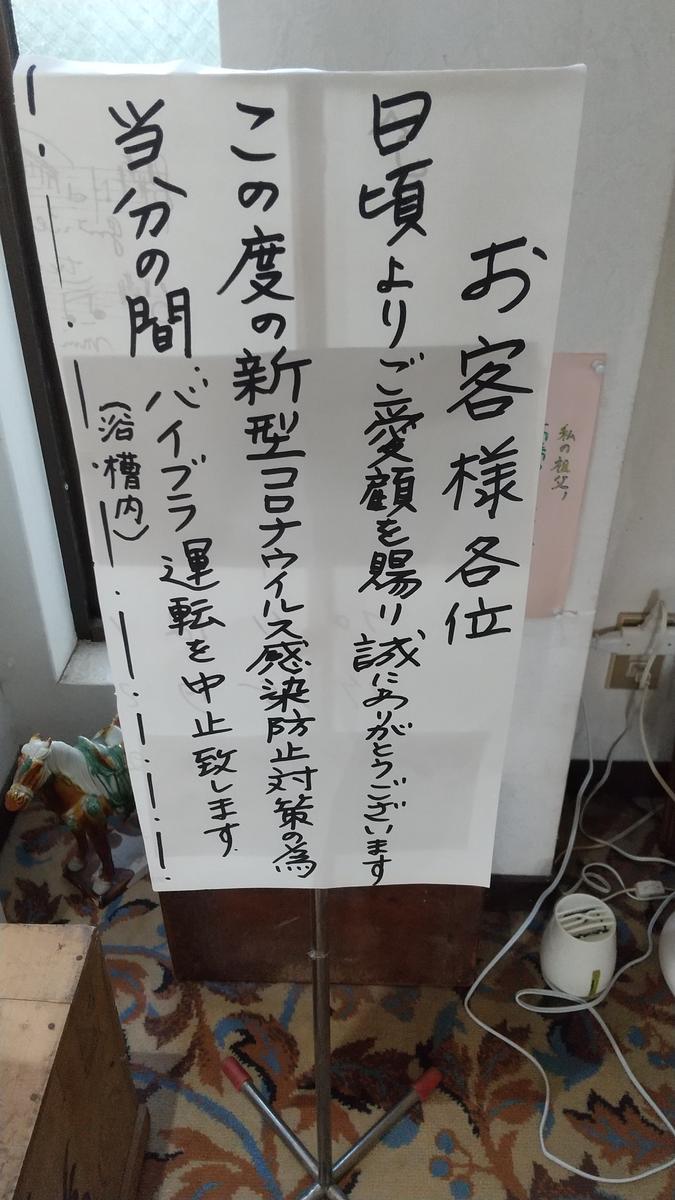 お客様各位
日頃よりご愛顧を賜り誠にありがとうございます
この度の新型コロナウイルス感染防止対策の為
当分の間バイブラ運転を中止致します
(浴槽内)
私の祖父